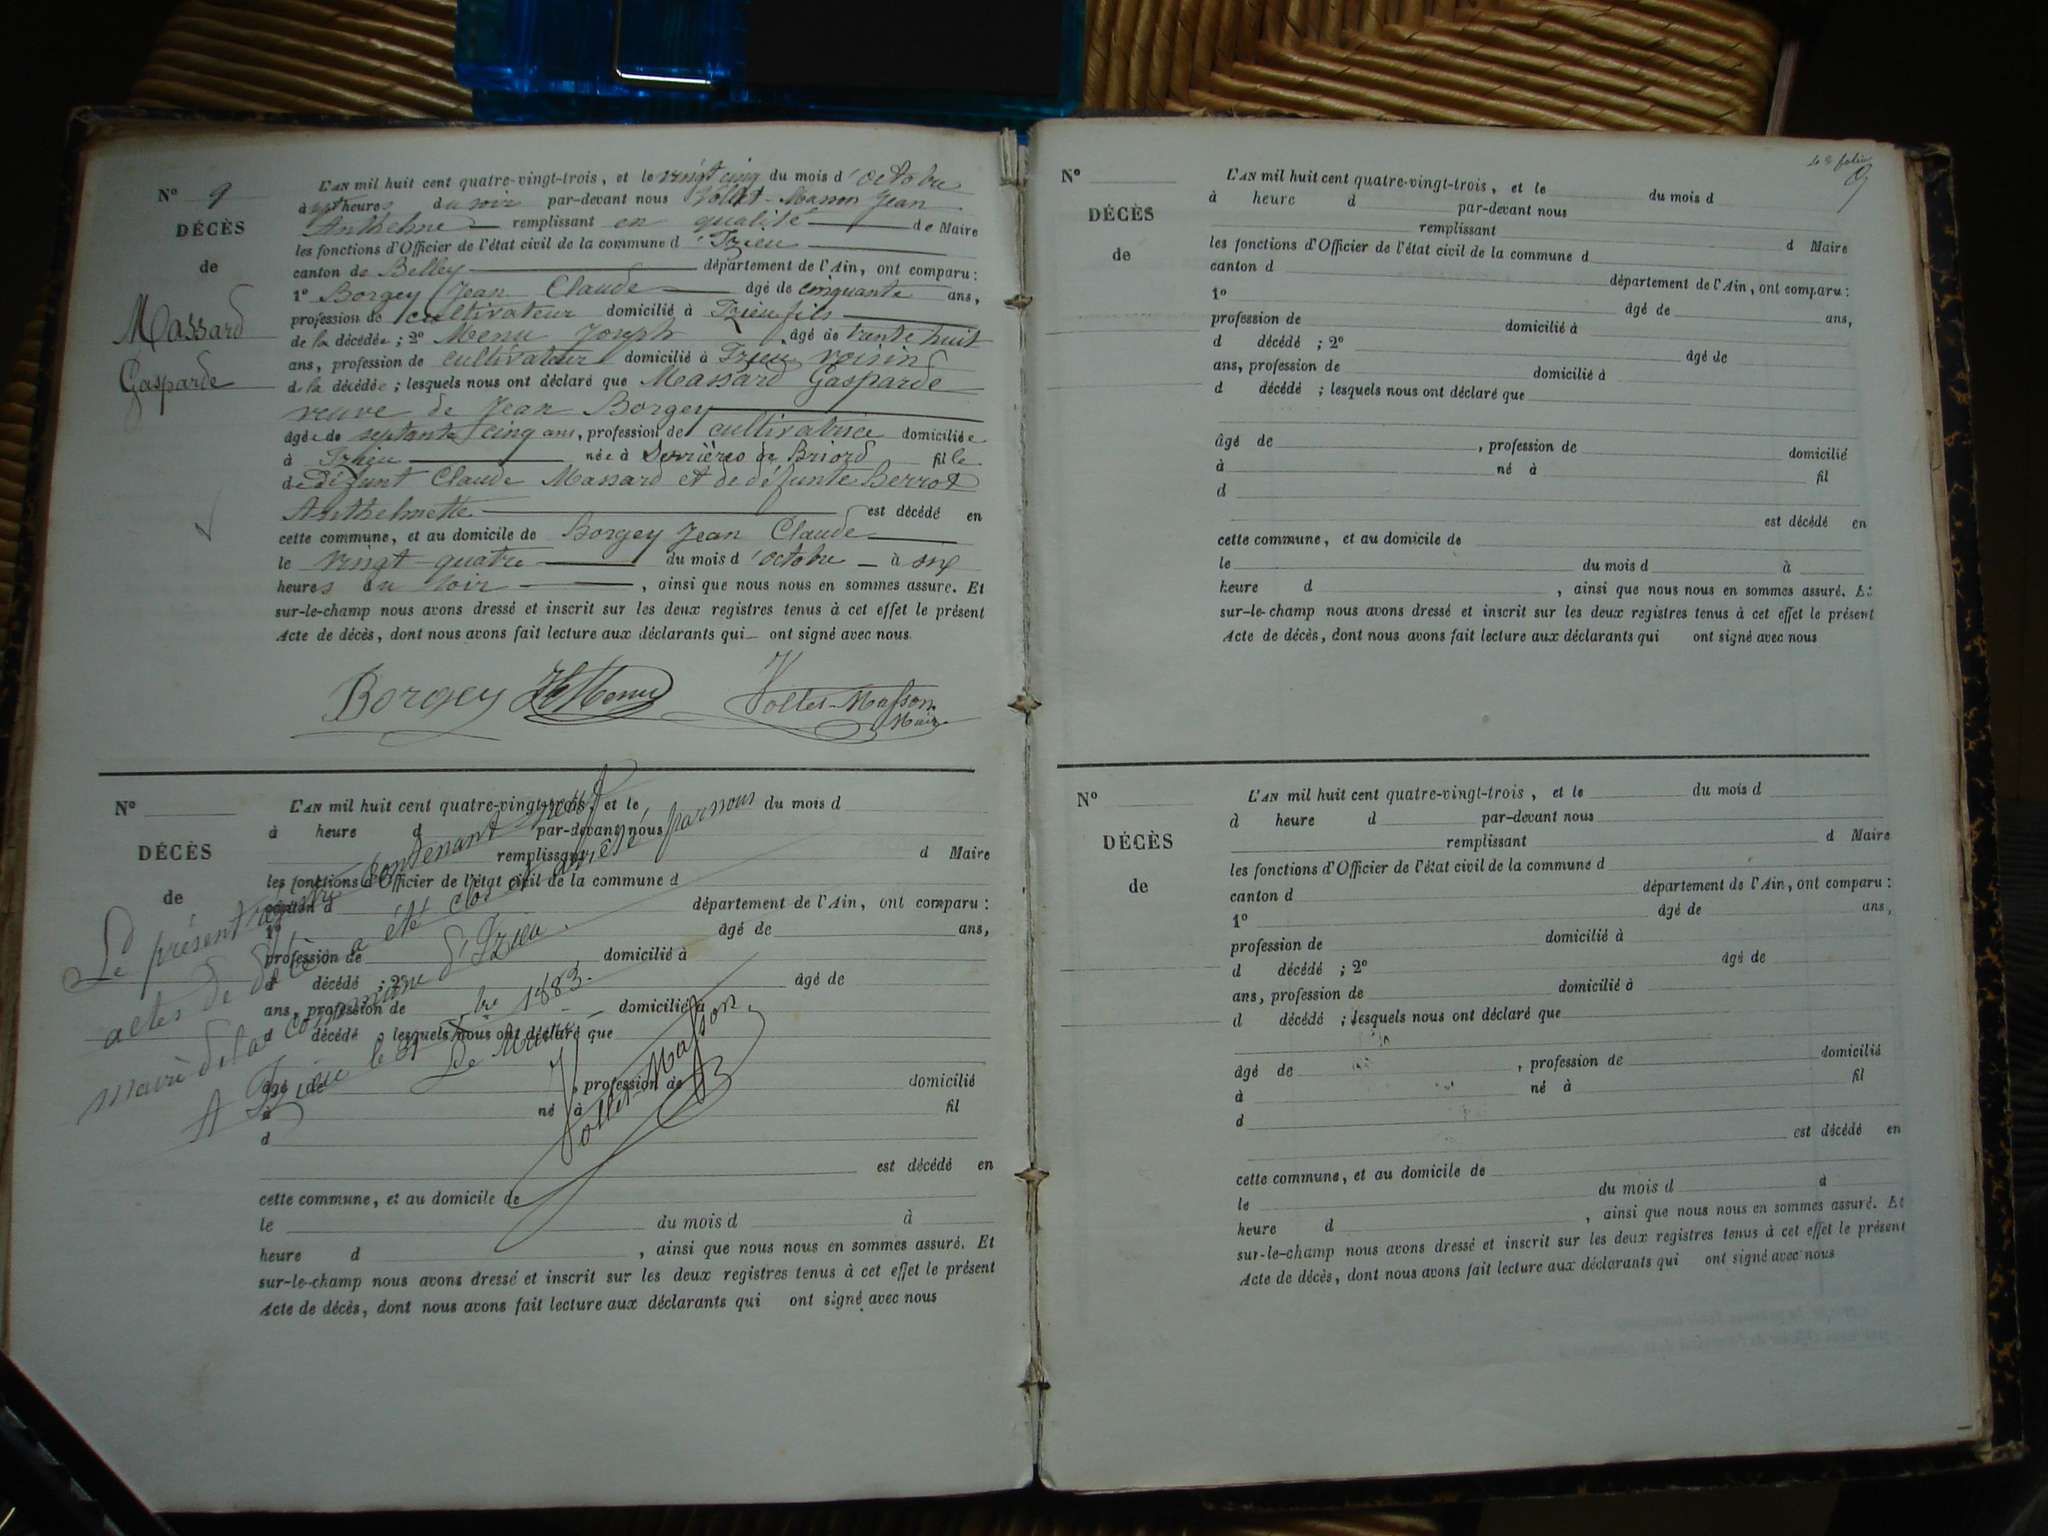 N° 9
DÉCÈS
de
Massard
Gasparde
L'AN mil huit cent quatre-vingt-trois, et le vingt cinq du mois d'octobre
à sept heures du soir par-devant nous Vollet-Masson Jean
Anthelme remplissant en qualité de Maire
les fonctions d'Officier de l'état civil de la commune d'Izieu
canton de Belley département de l'Ain, ont comparu :
1° Borgey Jean Claude âgé de cinquante ans,
profession de cultivateur domicilié à Izieu fils
de la décédée ; 2° Menu Joseph âgé de trente huit
ans, profession de cultivateur domicilié à Izieu voisin
de la décédée ; lesquels nous ont déclaré que Massard Gasparde
veuve de Jean Borgey
âgée de septante cinq ans, profession de cultivatrice domiciliée
à Izieu née à Serrières de Briord fille
de défunt Claude Massard et de défunte Berrod
Anthelmette est décédé en
cette commune, et au domicile de Borgey Jean Claude
le vingt quatre du mois d'octobre à six
heures du soir , ainsi que nous nous en sommes assuré. Et
sur-le-champ nous avons dressé et inscrit sur les deux registres tenus à cet effet le présent
Acte de décès, dont nous avons fait lecture aux déclarants qui ont signé avec nous
Borgey Menu Vollet-Masson
Maire
N°
DÉCÈS
de
L'AN mil huit cent quatre-vingt-trois, et le du mois d
à heure d par-devant nous
remplissant d Maire
les fonctions d'Officier de l'état civil de la commune d
canton d département de l'Ain, ont comparu :
1° âgé de ans,
profession de domicilié à
d décédé ; 2° âgé de
ans, profession de domicilié à
d décédé ; lesquels nous ont déclaré que
âgé de , profession de domicilié
à né à fil
d
est décédé en
cette commune, et au domicile de
le du mois d à
heure d , ainsi que nous nous en sommes assuré. Et
sur-le-champ nous avons dressé et inscrit sur les deux registres tenus à cet effet le présent
Acte de décès, dont nous avons fait lecture aux déclarants qui ont signé avec nous
Le présent registre contenant neuf
actes de décès a été clos et arrêté par nous
maire de la commune d'Izieu.
A Izieu le 31 Xbre 1883.
Le Maire
Vollet-Masson
9
N°
DÉCÈS
de
L'AN mil huit cent quatre-vingt-trois, et le du mois d
à heure d par-devant nous
remplissant d Maire
les fonctions d'Officier de l'état civil de la commune d
canton d département de l'Ain, ont comparu :
1° âgé de ans,
profession de domicilié à
d décédé ; 2° âgé de
ans, profession de domicilié à
d décédé ; lesquels nous ont déclaré que
âgé de , profession de domicilié
à né à fil
d
est décédé en
cette commune, et au domicile de
le du mois d à
heure d , ainsi que nous nous en sommes assuré. Et
sur-le-champ nous avons dressé et inscrit sur les deux registres tenus à cet effet le présent
Acte de décès, dont nous avons fait lecture aux déclarants qui ont signé avec nous
N°
DÉCÈS
de
L'AN mil huit cent quatre-vingt-trois, et le du mois d
à heure d par-devant nous
remplissant d Maire
les fonctions d'Officier de l'état civil de la commune d
canton d département de l'Ain, ont comparu :
1° âgé de ans,
profession de domicilié à
d décédé ; 2° âgé de
ans, profession de domicilié à
d décédé ; lesquels nous ont déclaré que
âgé de , profession de domicilié
à né à fil
d
est décédé en
cette commune, et au domicile de
le du mois d à
heure d , ainsi que nous nous en sommes assuré. Et
sur-le-champ nous avons dressé et inscrit sur les deux registres tenus à cet effet le présent
Acte de décès, dont nous avons fait lecture aux déclarants qui ont signé avec nous